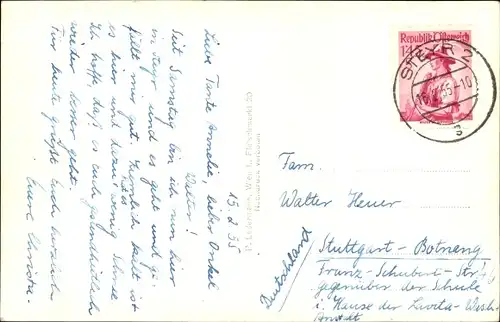 15.2.55
Liebe Tante Amelie, lieber Onkel
Walter!
Seit Samstag bin ich nun hier
in Steyr und es geht und ge-
fällt mir gut. Ziemlich kalt ist
es hier und wenig Schnee.
Ich hoffe, daß es euch gesundheitlich
wieder besser geht.
Für heute grüßt euch herzlich
Eure Christa.
P. Ledermann, Wien I., Fleischmarkt 20
Nachdruck verboten
Republik Österreich
STEYR 2
Fam.
Walter Heuer
Stuttgart-Botnang
Franz-Schubert-Str.
gegenüber der Schule
i. Hause der
Anstalt
Deutschland